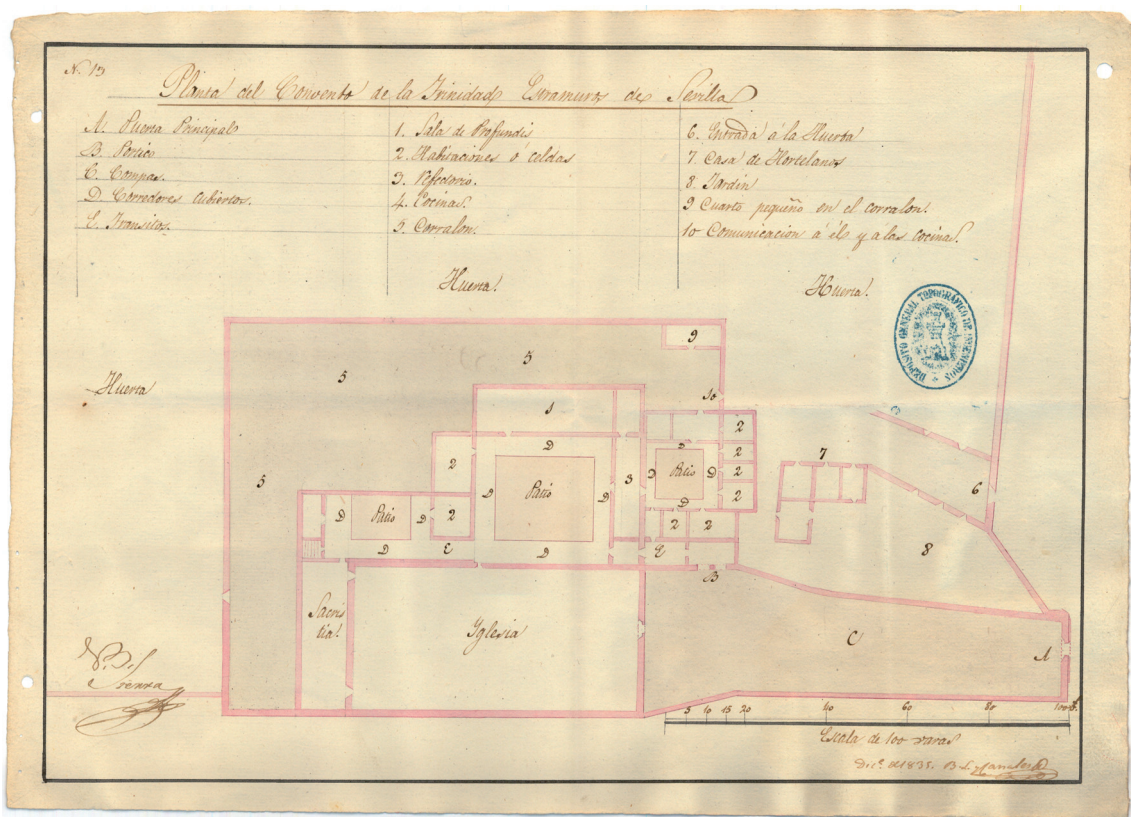 N. 13
Planta del Convento de la Trinidad Extramuros de Sevilla
A. Puerta Principal
B. Portico
C. Compas.
D. Corredores Cubiertos.
E. Transitos.
1. Sala de Profundis
2. Habitaciones ó celdas
3. Refectorio.
4. Cocinas.
5. Corralon.
6. Entrada à la Huerta
7. Casa de Hortelanos
8. Jardin
9 Cuarto pequeño en el corralon.
10 Comunicacion à él y à las cocinas.
Huerta
Huerta
DEPOSITO GENERAL TOPOGRÁFICO DE INGENIEROS
Huerta
5
5
9
10
1
2
2
2
2
2
2
2
2
3
7
6
8
D
D
D
D
D
D
D
D
D
D
D
D
Patio
Patio
Patio
E
E
B
C
A
Sacris
tia
Yglesia
5 10 15 20 40 60 80 100
Escala de 100 varas
Dic.e de 1835.